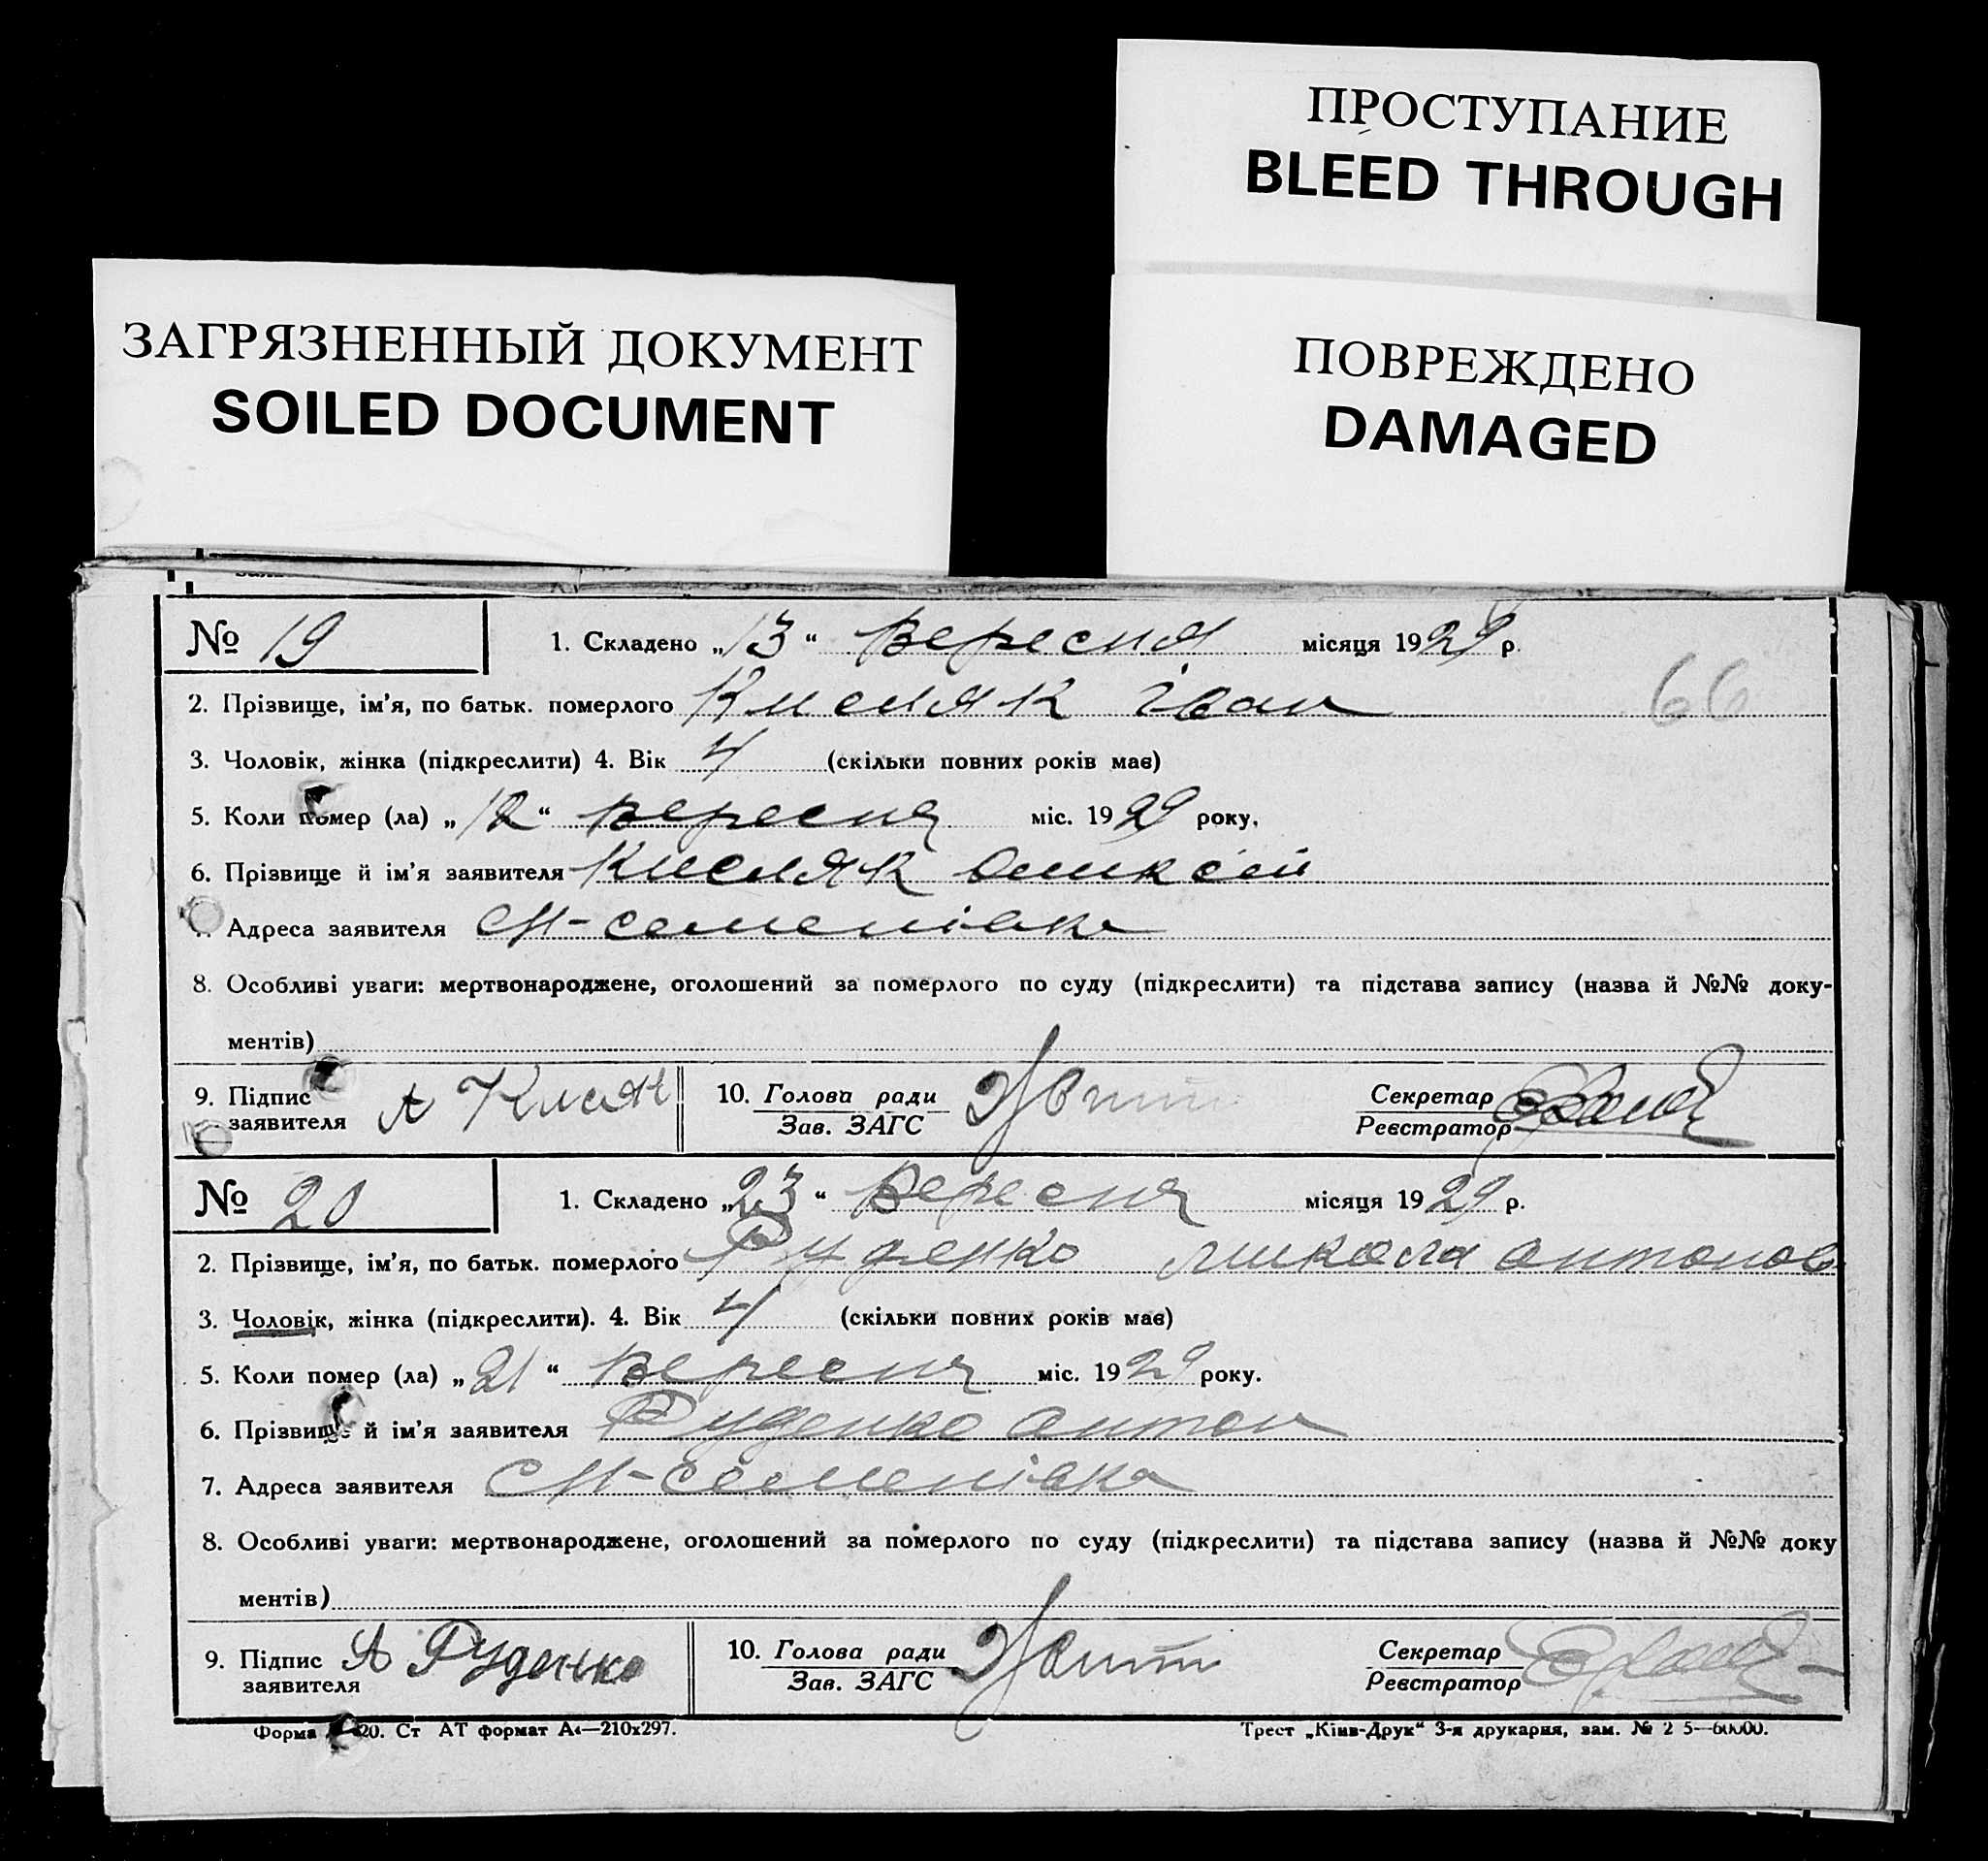 ПРОСТУПАНИЕ
BLEED THROUGH
ЗАГРЯЗНЕННЫЙ ДОКУМЕНТ
SOILED DOCUMENT
ПОВРЕЖДЕНО
DAMAGED
№ 19 1. Складено „13“ вересня місяця 1929 р.
66
2. Прізвище, ім'я, по батьк. померлого Кисляк іван
3. Чоловік, жінка (підкреслити) 4. Вік 4 (скільки повних років має)
5. Коли помер (ла) „12“ вересня міс. 1929 року.
6. Прізвище й ім'я заявителя Кисляк
Адреса заявителя М-семенівка
8. Особливі уваги: мертвонароджене, оголошений за померлого по суду (підкреслити) та підстава запису (назва й №№ доку-
ментів)
9. Підпис заявителя А 10. Голова ради Зав. ЗАГС Секретар Реєстратор
№ 20 1. Складено „23“ вересня місяця 1929 р.
2. Прізвище, ім'я, по батьк. померлого Руденко микола антонов
3. Чоловік, жінка (підкреслити). 4. Вік 4 (скільки повних років має)
5. Коли помер (ла) „21“ вересня міс. 1929 року.
6. Прізвище й ім'я заявителя Руденко антон
7. Адреса заявителя М-семенівка
8. Особливі уваги: мертвонароджене, оголошений за померлого по суду (підкреслити) та підстава запису (назва й №№ доку
ментів)
9. Підпис заявителя А Руденко 10. Голова ради Зав. ЗАГС Секретар Реєстратор
Форма 20. Ст АТ формат А4—210x297. Трест „Київ-Друк“ 3-я друкарня, зам. № 2 5—60000.